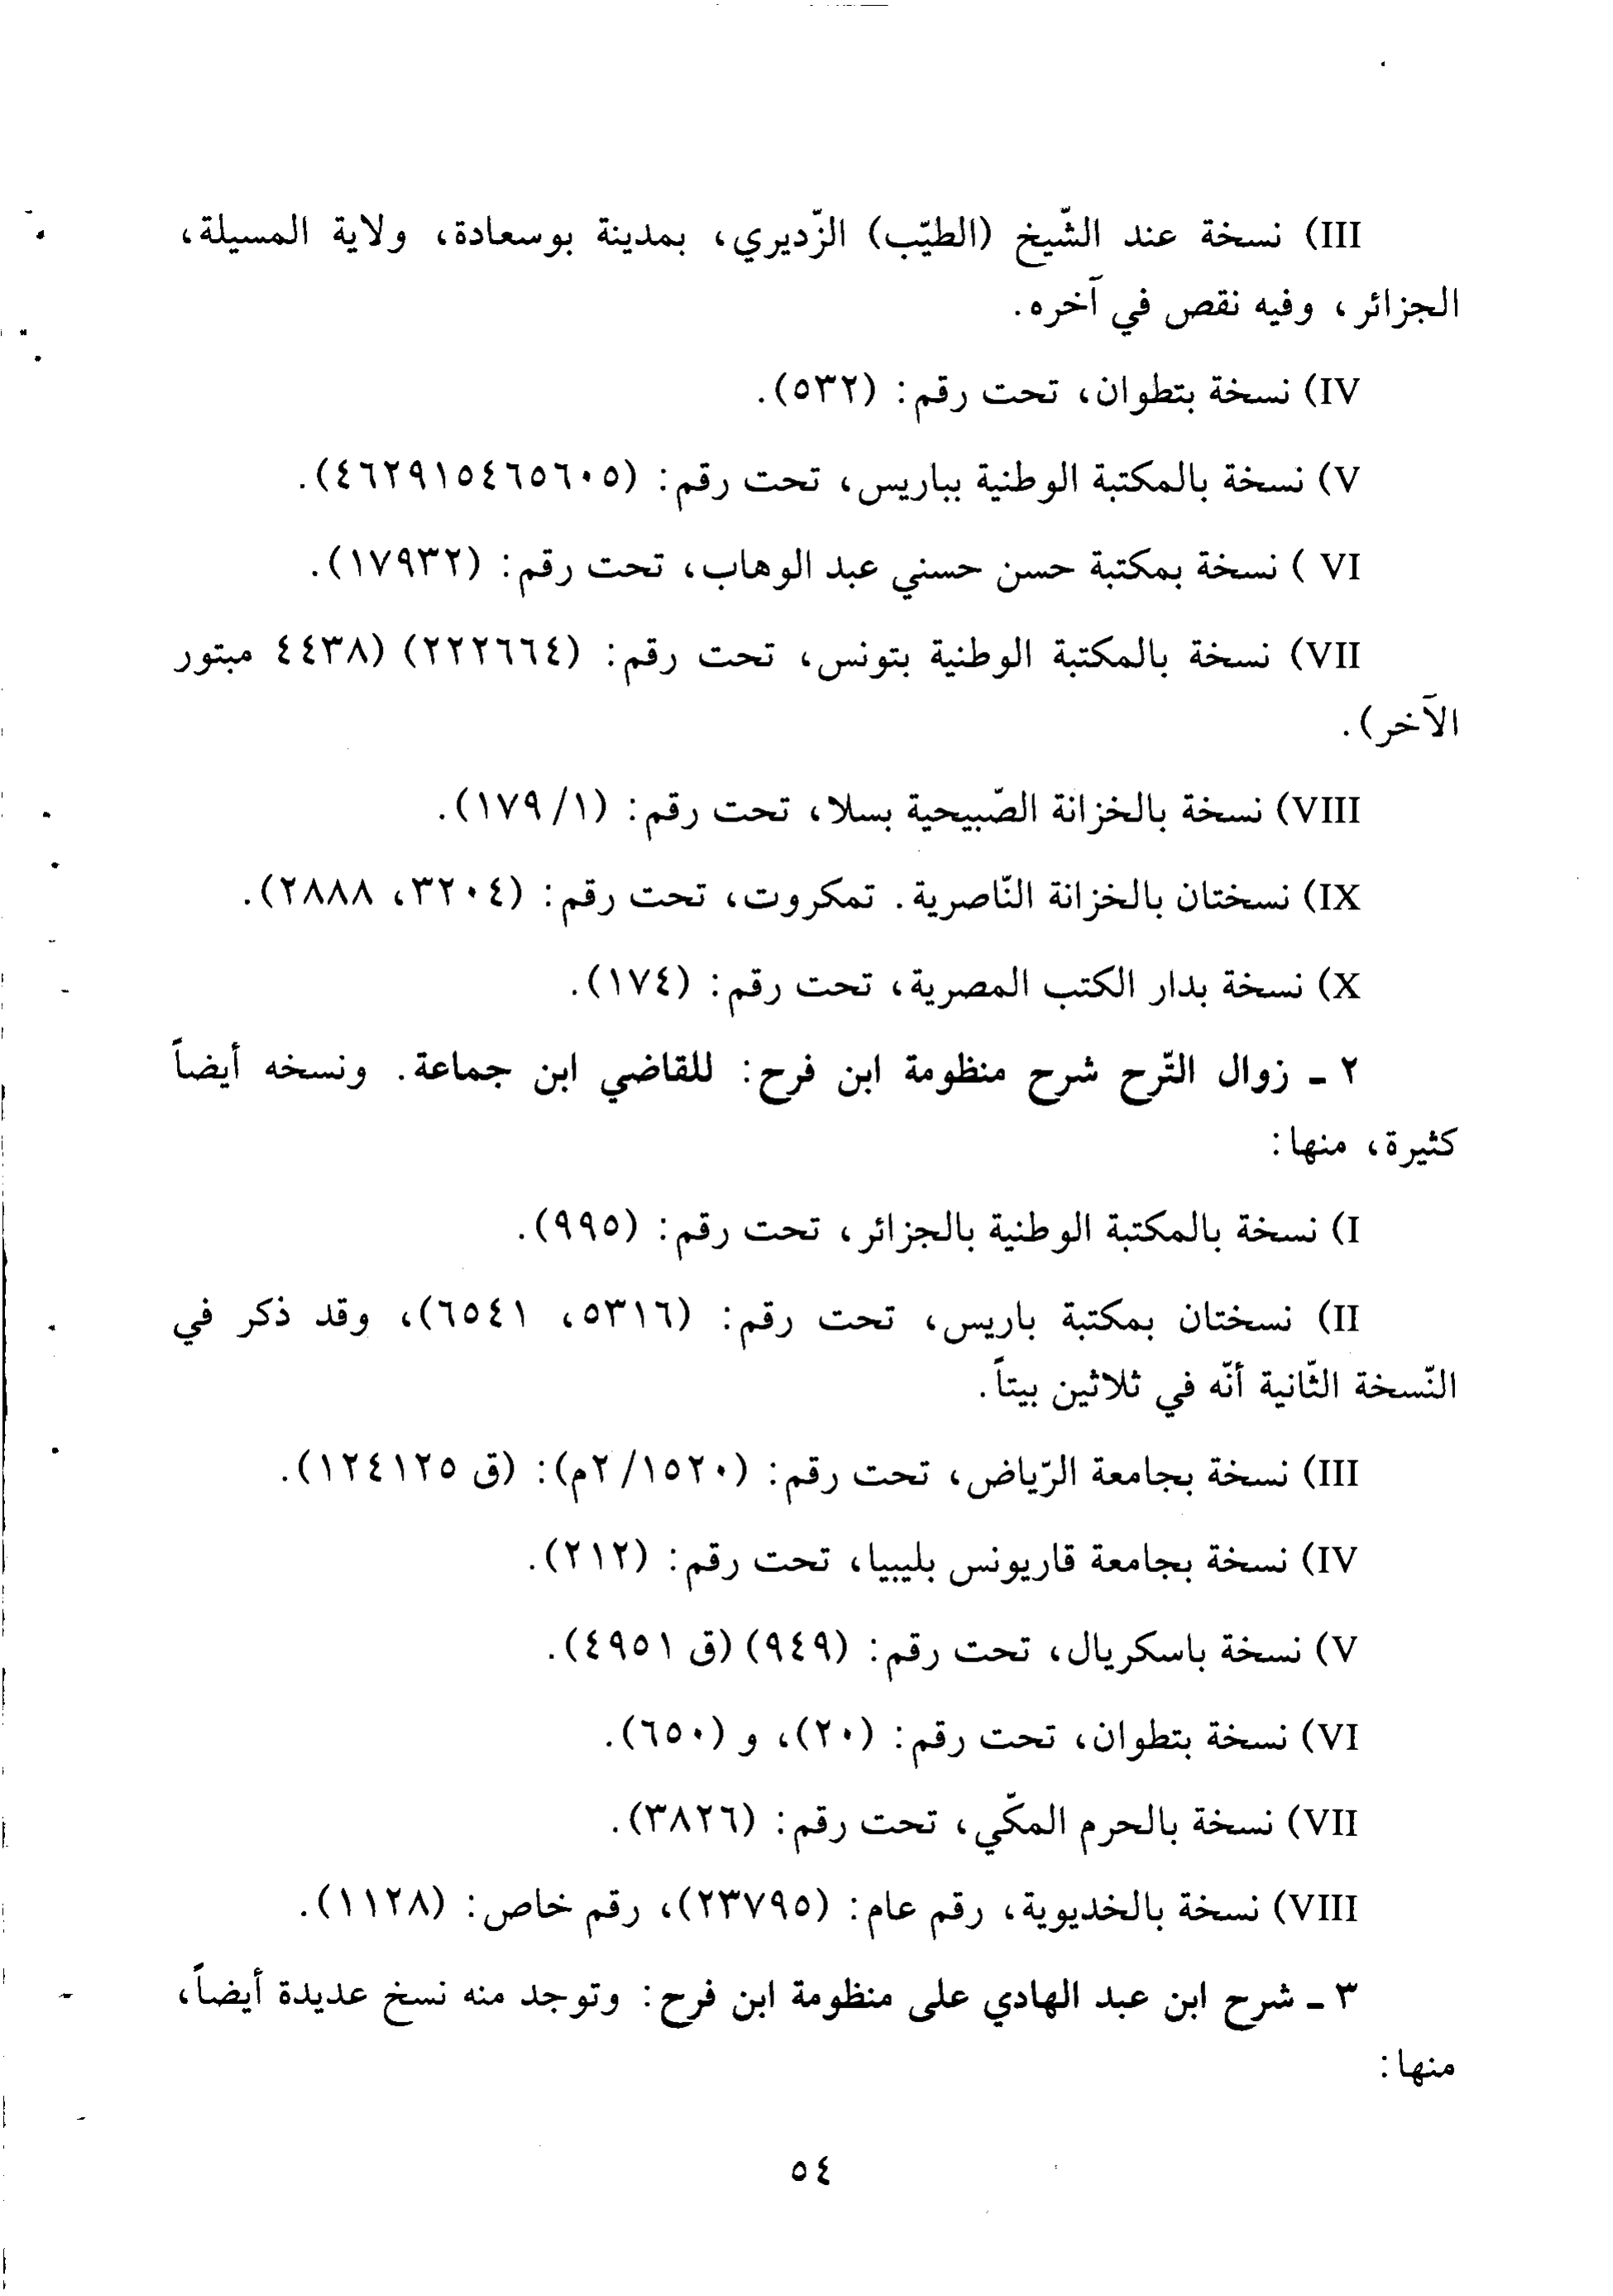 III) نسخة عند الشّيخ (الطيّب) الزّديري، بمدينة بوسعادة، ولاية المسيلة،
الجزائر، وفيه نقص في آخره.
IV) نسخة بتطوان، تحت رقم: (٥٣٢).
V) نسخة بالمكتبة الوطنية بباريس، تحت رقم: (٤٦٢٩١٥٤٦٥٦٠٥).
VI ) نسخة بمكتبة حسن حسني عبد الوهاب، تحت رقم: (١٧٩٣٢).
VII) نسخة بالمكتبة الوطنية بتونس، تحت رقم: (٢٢٢٦٦٤) (٤٤٣٨ مبتور
الآخر).
VIII) نسخة بالخزانة الصّبيحية بسلا، تحت رقم: (١٧٩/١).
IX) نسختان بالخزانة النّاصرية. تمكروت، تحت رقم: (٣٢٠٤، ٢٨٨٨).
X) نسخة بدار الكتب المصرية، تحت رقم: (١٧٤).
٢ - زوال التّرح شرح منظومة ابن فرح: للقاضي ابن جماعة. ونسخه أيضاً
كثيرة، منها:
I) نسخة بالمكتبة الوطنية بالجزائر، تحت رقم: (٩٩٥).
II) نسختان بمكتبة باريس، تحت رقم: (٥٣١٦، ٦٥٤١)، وقد ذكر في
النّسخة الثّانية أنّه في ثلاثين بيتاً.
III) نسخة بجامعة الرّياض، تحت رقم: (١٥٢٠/٢م): (ق ١٢٤١٢٥).
IV) نسخة بجامعة قاريونس بليبيا، تحت رقم: (٢١٢).
V) نسخة باسكريال، تحت رقم: (٩٤٩) (ق ٤٩٥١).
VI) نسخة بتطوان، تحت رقم: (٢٠)، و (٦٥٠).
VII) نسخة بالحرم المكّي، تحت رقم: (٣٨٢٦).
VIII) نسخة بالخديوية، رقم عام: (٢٣٧٩٥)، رقم خاص: (١١٢٨).
٣ - شرح ابن عبد الهادي على منظومة ابن فرح: وتوجد منه نسخ عديدة أيضاً،
منها:
٥٤